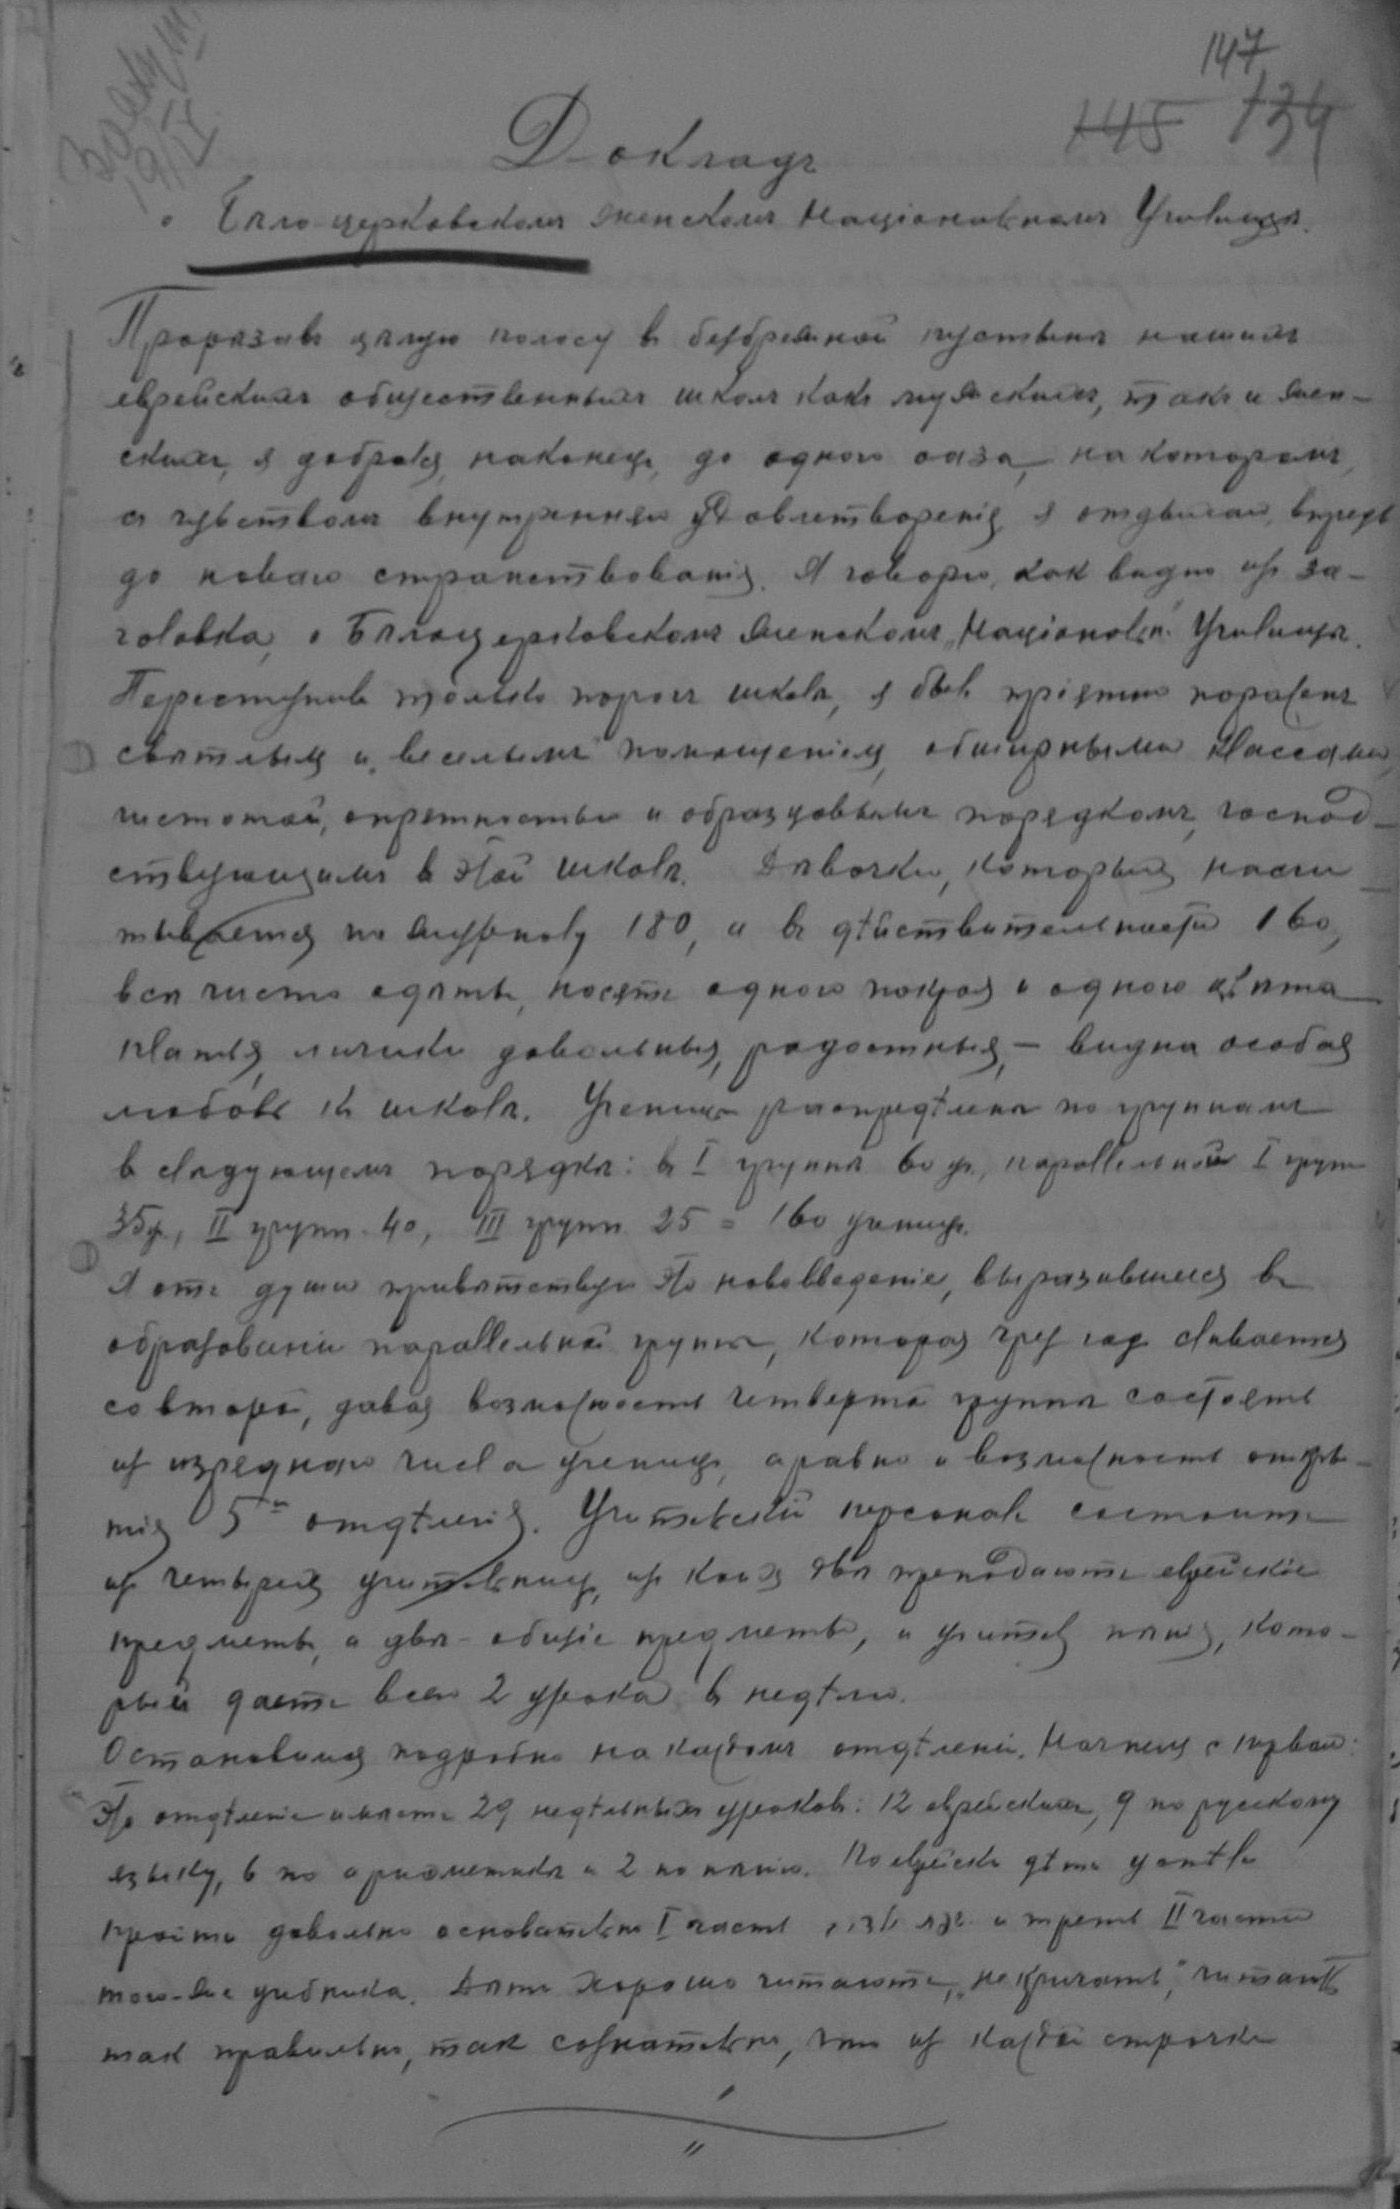 147
145 134
Докладъ
о Бѣлоцерковскомъ женскомъ Національномъ Училищѣ.
Прорѣзавъ цѣлую полосу въ безбрежной пустынѣ нашихъ
еврейскихъ общественныхъ школъ какъ мужскихъ, такъ и жен-
скихъ, я добрался, наконецъ, до одного оаза, на которомъ,
съ чувствомъ внутренняго удовлетворенія, я отдыхаю, впредь
до новаго странствованія. Я говорю, какъ видно изъ за-
головка, о Бѣлоцерковскомъ женскомъ „Національн." Училищѣ.
Переступивъ только порогъ школы, я былъ пріятно пораженъ
свѣтлымъ и веселымъ помѣщеніемъ, обширными классами,
чистотой, опрятностью и образцовымъ порядкомъ, господ-
ствующимъ въ этой школѣ. Дѣвочки, которыхъ насчи-
тывается по журналу 180, а въ дѣйствительности 160,
всѣ чисто одѣты, носятъ одного покроя и одного цвѣта
платья, личики довольныя, радостныя, — видна особая
любовь къ школѣ. Ученицы распредѣлены по группамъ
въ слѣдующемъ порядкѣ: въ I группѣ 60 уч., параллельной I групп
35 у., II групп. 40, III групп. 25 = 160 ученицъ.
Я отъ души привѣтствую это нововведеніе, выразившееся въ
образованіи параллельной группы, которая чрез год сливается
со второй, давая возможность четвертой группѣ состоять
из изряднаго числа ученицъ, а равно и возможность откры-
тія 5го отдѣленія. Учительскій персоналъ состоитъ
из четырехъ учительницъ, изъ коихъ двѣ преподаютъ еврейскіе
предметы, а двѣ - общіе предметы, и учитель пѣнія, кото-
рый даетъ всего 2 урока въ недѣлю.
Остановимся подробно на каждомъ отдѣленіи. Начнемъ с перваго:
Это отдѣленіе имѣетъ 29 недѣльныхъ уроковъ: 12 еврейскихъ, 9 по русскому
языку, 6 по ариѳметикѣ и 2 по пѣнію. По еврейски дѣти успѣли
пройти довольно основательно I часть и треть II части
того-же учебника. Дѣти хорошо читаютъ, „не кричатъ", читаютъ
такъ правильно, такъ сознательно, что из каждой строчки